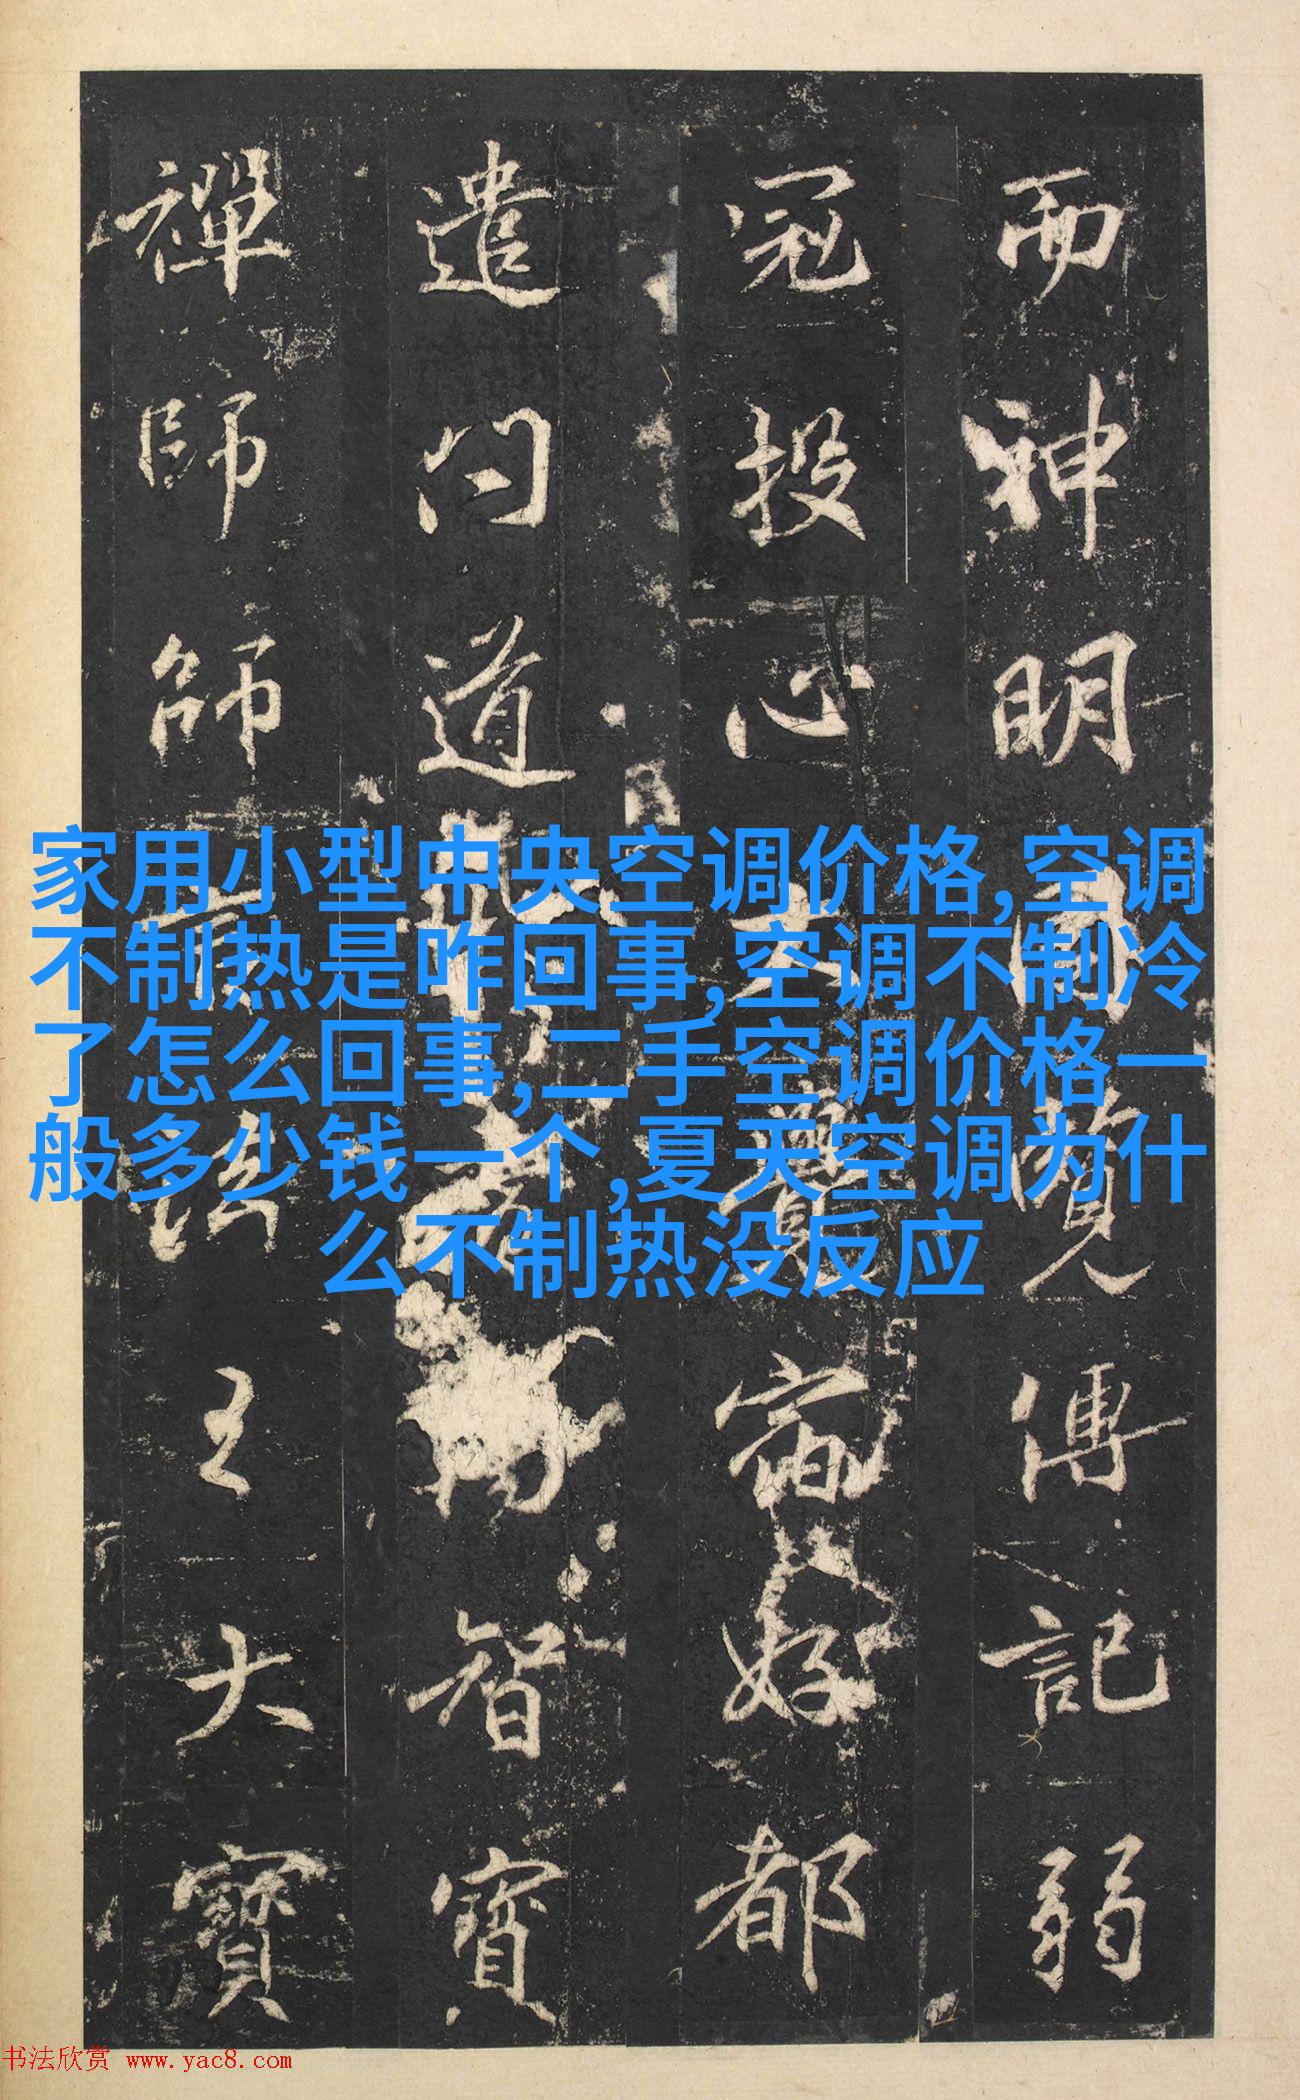 而神明覽傳記弱
冠投心宿好都
遣問道智寶
禪師師法主大寶
家用小型中央空调价格,空调
不制热是咋回事,空调不制冷
了怎么回事,二手空调价格一
般多少钱一个,夏天空调为什
么不制热没反应
书法欣赏 www.yac8.com